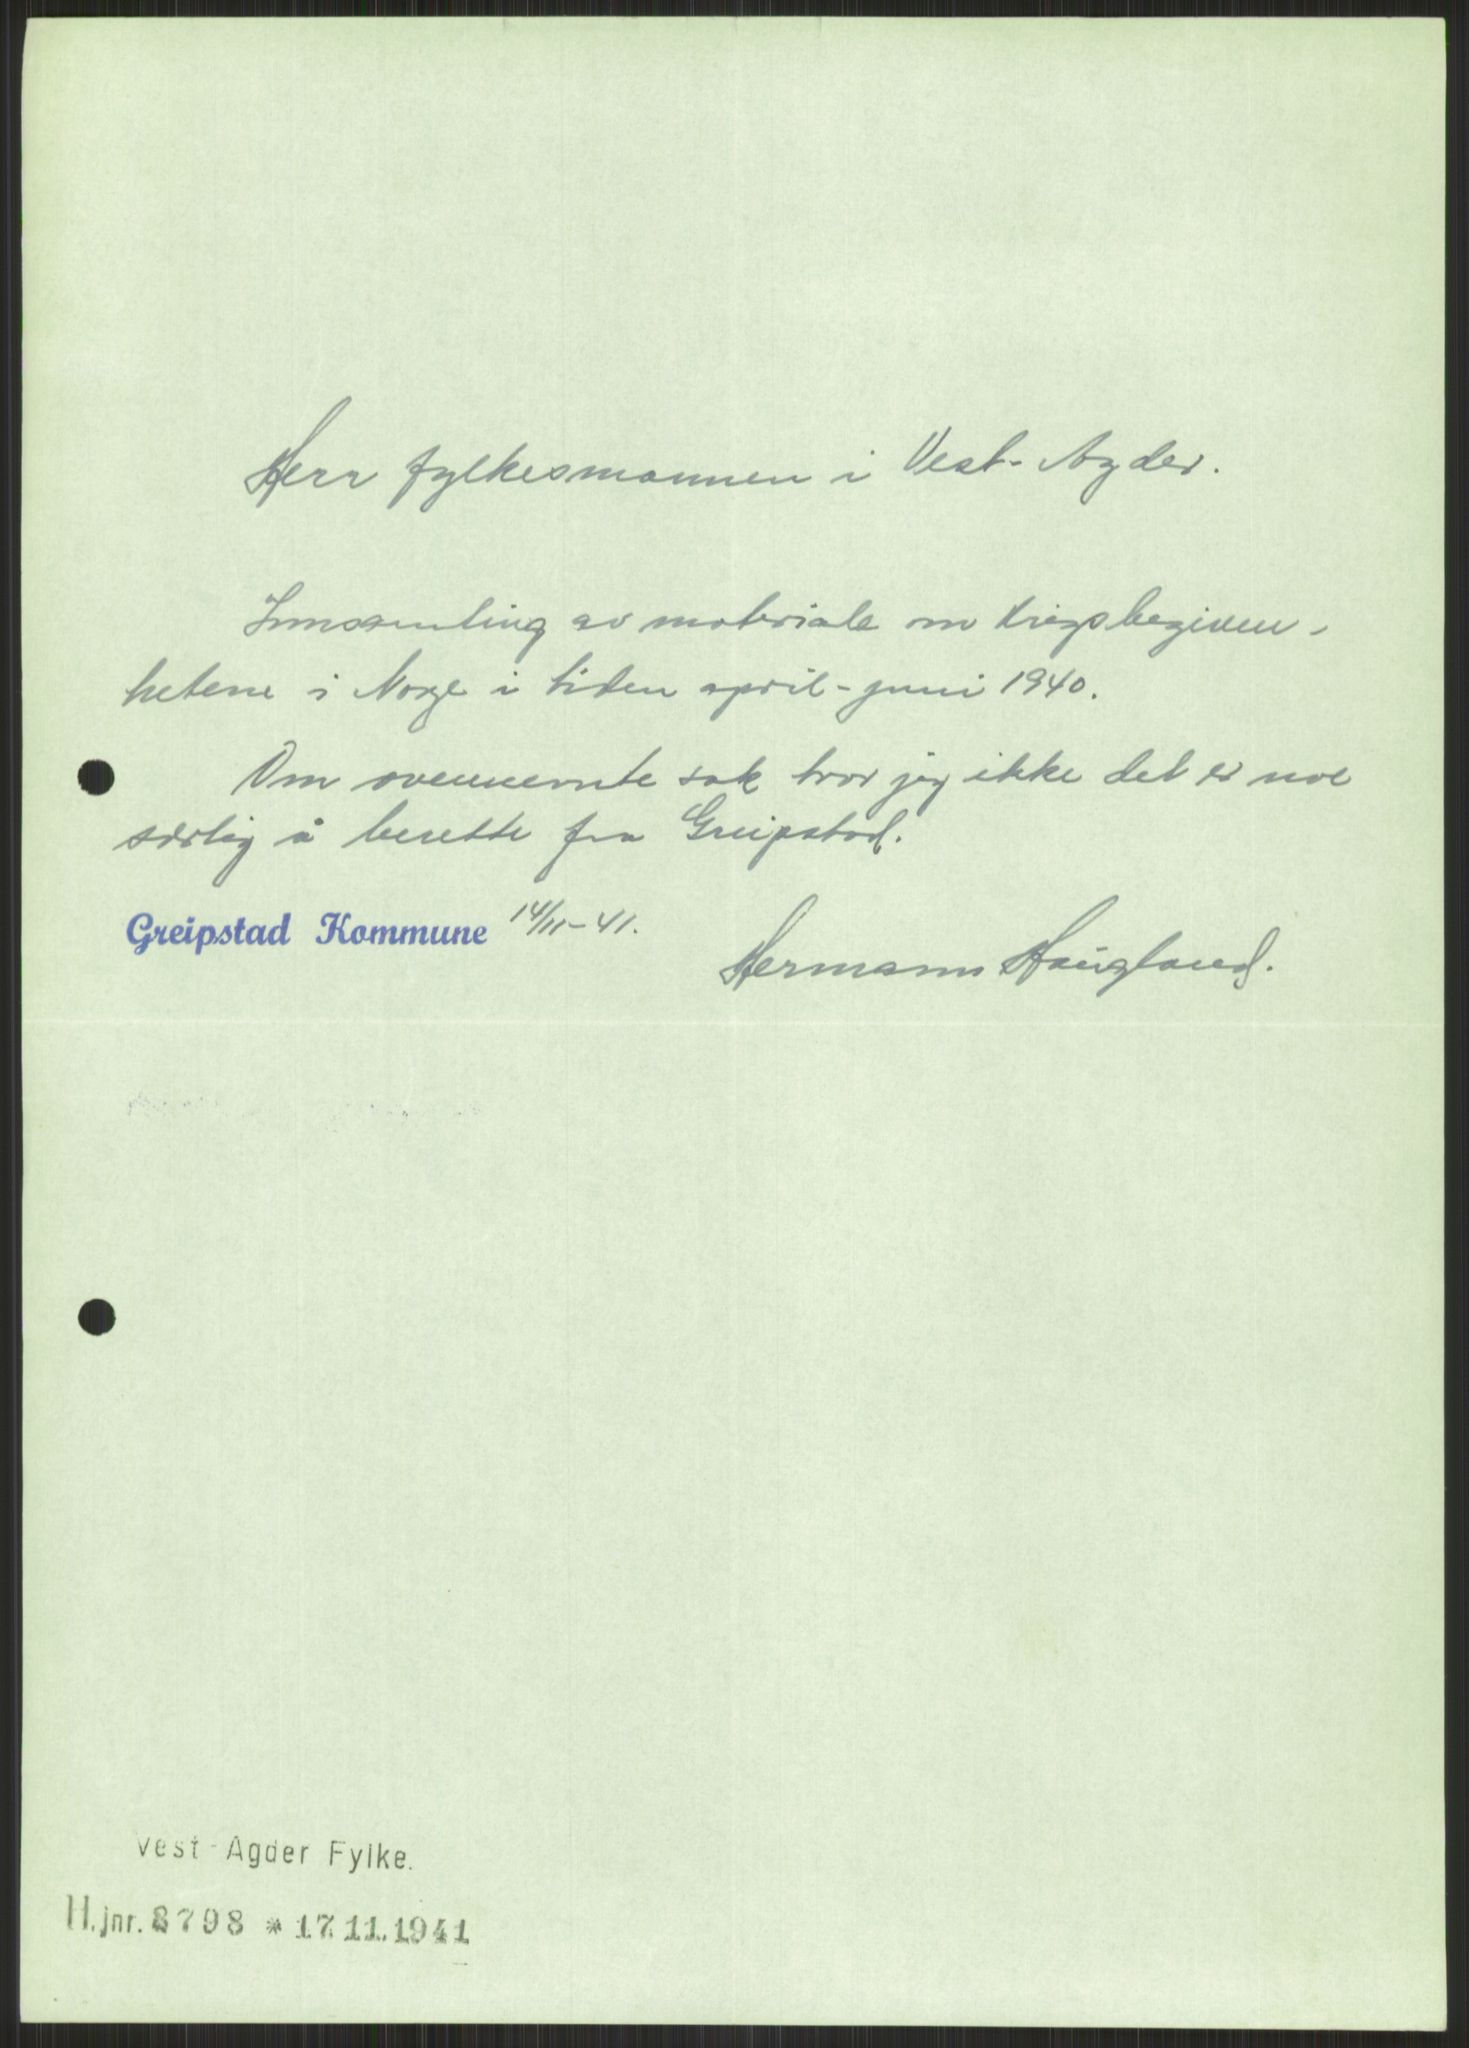 Herr fylkesmannen i Vest-Agder.
Innsamling av materiale om krigsbegiven-
hetene i Norge i tiden april-juni 1940.
Om ovennevnte sak tror jeg ikke det er noe
særlig å berette fra Greipstad.
Greipstad Kommune 14/11-41.
Hermann Haugland.
Vest-Agder Fylke.
H.jnr. 8798 * 17.11.1941